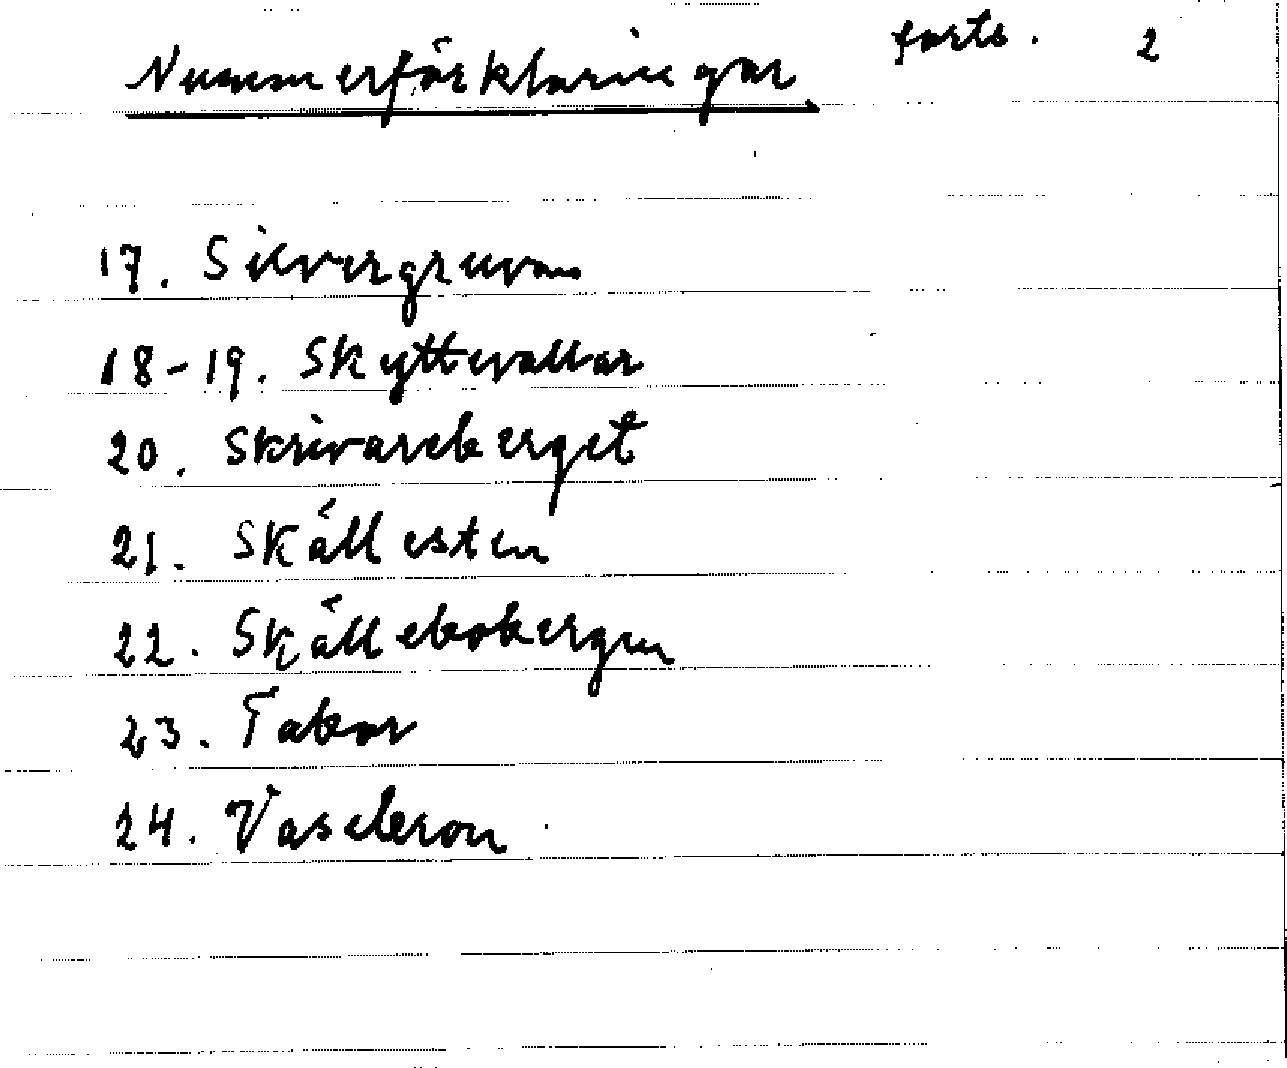 Nummerförklaringar forts. 2
17. Silvergruvan
18-19. Skyttevallar
20. Skrivareberget
21. Skällesten
22. Skällebobergen
23. Tabor
24. Vasabron